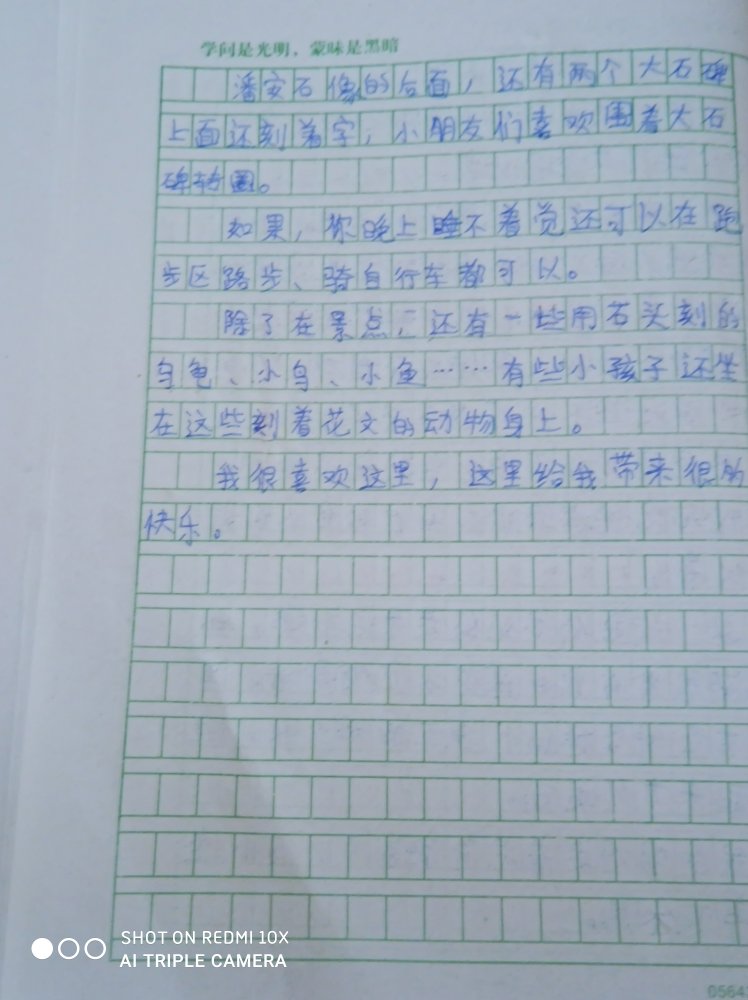 学问是光明，蒙昧是黑暗
潘安石像的后面，还有两个大石碑
上面还刻着字，小朋友们喜欢围着大石
碑转圈。
如果，你晚上睡不着觉还可以在跑
步区跑步、骑自行车都可以。
除了在景点，还有一些用石头刻的
乌龟、小鸟、小鱼……有些小孩子还坐
在这些刻着花文的动物身上。
我很喜欢这里，这里给我带来很多
快乐。
SHOT ON REDMI 10X
AI TRIPLE CAMERA